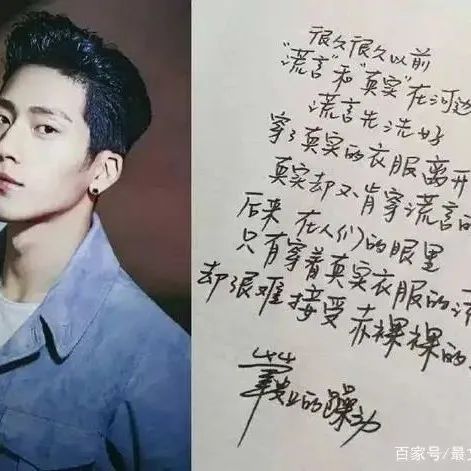 很久很久以前
"谎言"和"真实"在河边
谎言先洗好
穿了真实的衣服离开
真实却不肯穿谎言的
后来 在人们的眼里
只有穿着真实衣服的
却很难接受 赤裸裸的
的躁动
百家号/最